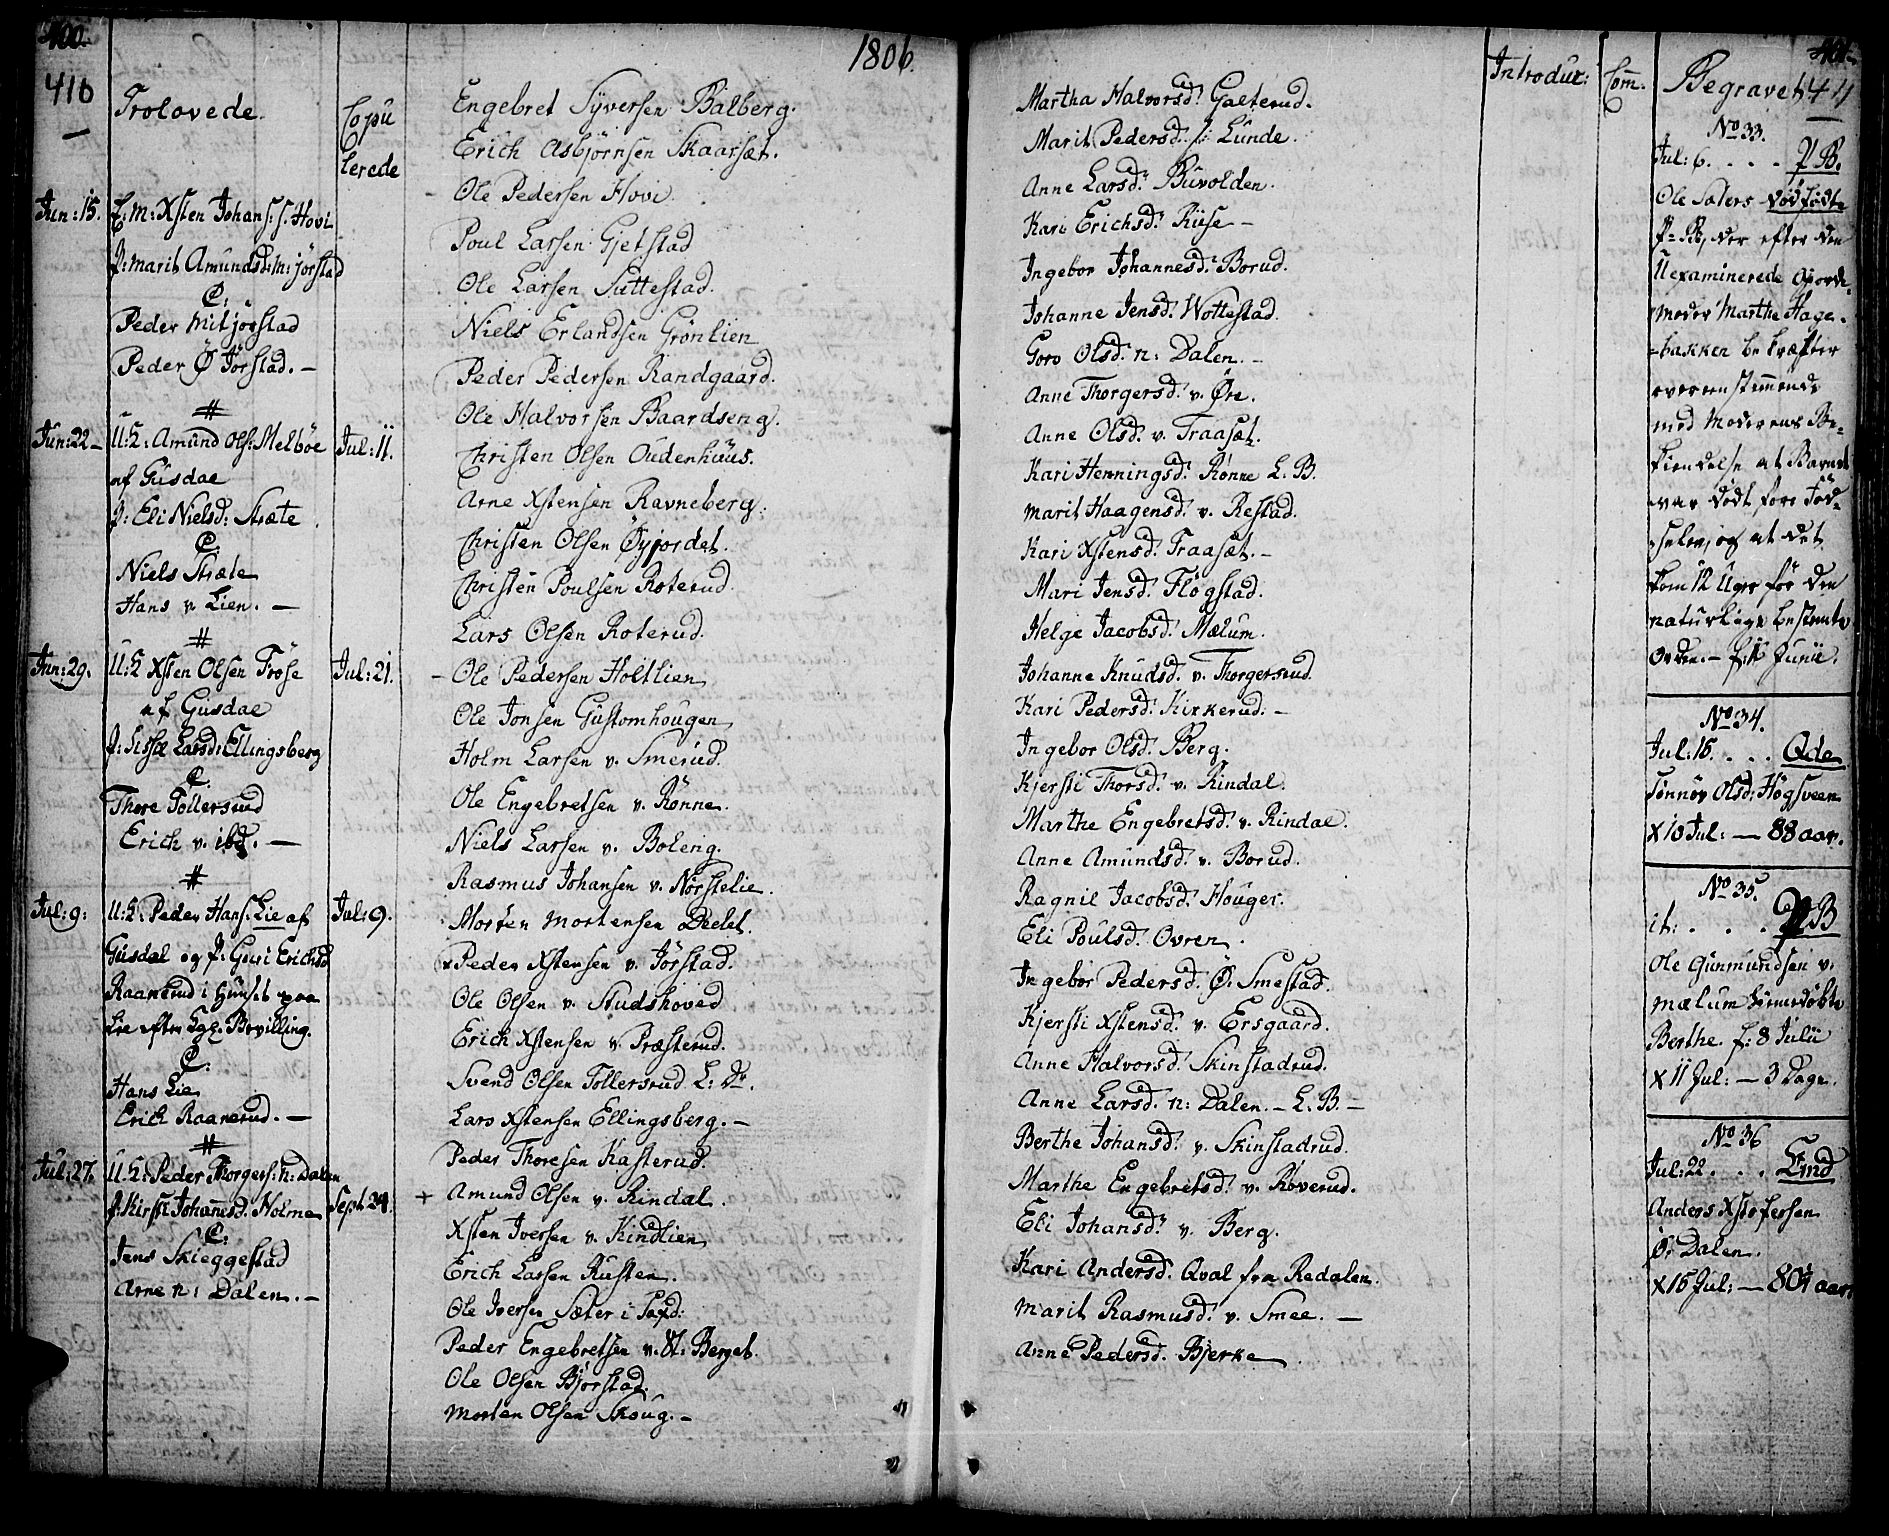 400
410
1806.
Trolovede.
Copu
lerede
Jun: 15. E: M: Xsten Johans: S: Hovi
P: Marit Amunds d: M: Jörstad
C:
Peder Mitjörstad
Peder Ö Jörstad. —
#
Jun: 22 — U: K: Amund Ols: Melböe Jul: 11.
af Gusdae
P: Eli Nielsd: Stræte
C:
Niels Stræte
Hans v. Lien. —
#
Jun: 29. U: K Xsten Olsen Fröse Jul: 21.
af Gusdae
P: Sissæ Larsd: Ellingsberg
C:
Thore Tollersrud
Erich v. ibd. —
#
Jul: 9: U: K: Peder Hans: Lie af Jul: 9.
Gusdal og P: Guri Erichsd
Raanerud i
Lie efter Kgl: Bevilling.
C:
Hans Lie
Erich Raanerud. —
#
Jul: 27. U: K: Peder Thorgers: n: Dalen
P. Kirsti Johannesd. Holme Sept. 24.
C:
Jens Skieggestad
Arne n: Dalen. —
Engebret Syversen Balberg.
Erich Asbjörnsen Skaarsæt.
- Ole Pedersen Hovi.
Poul Larsen Gjetstad
Ole Larsen Suttestad.
Niels Erlandsen Grönlien
Peder Pedersen Randgaard.
Ole Halvorsen Baardseng.
Christen Olsen Oudenhuus.
Arne Xstensen Ravneberg.
Christen Olsen Öyjordet.
Christen Poulsen Roterud.
Lars Olsen Roterud.
- Ole Pedersen Holtlien
Ole Jonsen Gustomhougen
Holm Larsen v. Smerud.
Ole Engebretsen v. Rönne.
Niels Larsen v. Boleng.
Rasmus Johansen v. Nörstelie.
Morten Mortensen Deelet.
x Peder Xstensen v. Jörstad.
Ole Olsen v. Studshoved
Erich Xstensen v. Præsterud.
Svend Olsen Tollersrud L: Dr.
Lars Xstensen Ellingsberg. —
Peder Thoresen Kasterud.
+ Amund Olsen v. Rindal.
Xsten Iversen v. Kindlien
Erich Larsen Rusten.
Ole Iversen Sæter i
Peder Engebretsen v. St: Berget.
Ole Olsen Björstad.
Morten Olsen Skoug. —
401
Introduc: Com. Begravet 411
Martha Halvorsd. Galterud.
Marit Pedersd. S: Lunde.
Anne Larsd. Buvolden.
Kari Erichsd. Riise —
Ingebor Johannesd. Borud.
Johanne Jensd. Wottestad.
Goro Olsd. n: Dalen. —
Anne Thorgersd. v. Öre.
Anne Olsd. v. Traasæt.
Kari Henningsd. Rønne L. B.
Marit Haagensd. v. Restad.
Kari Xstensd. Traasæt. —
Mari Jensd. Flögstad.
Helge Jacobsd. Mælum.
Johanne Knudsd. v. Thorgersrud.
Kari Pedersd. Kirkerud. —
Ingebor Olsd. Berg.
Kjersti Thorsd. v. Rindal.
Marthe Engebretsd. v. Rindae.
Anne Amundsd. v. Borud.
Ragnil Jacobsd. Houger.
Eli Poulsd. Ovren.
Ingebor Pedersd. Ö. Smestad.
Kjersti Xstensd. v. Ersgaard.
Anne Halvorsd. Skinstadrud.
Anne Larsd. n: Dalen. — L. B. —
Berthe Johansd. v. Skinstadrud.
Marthe Engebretsd. v. Röverud.
Eli Johansd. v. Berg.
Kari Andersd. Qval fra Redalen.
Marit Rasmusd. v. Smee. —
Anne Pedersd. Bjerke
No 33.
Jul: 6. . . . P B.
Ole Sæters dödfödte
P= B, der efter den
Uexaminerede Gjorde-
moder Marthe Hage-
-bakken bekræfter
overeenstemmende
med Moderens Be-
kiendelse at Barnet
var dödt före Föd-
selen, og at det
kom 12 Uger för den
naturlige bestemte
Orden. — f: 11 Junii.
No 34.
Jul: 16. . . . Qde
Tönnöv Olsd: Högsveen
X 10 Jul: — 88 aar.
No 35.
it: . . . P B
Ole Gunmundsen v.
Mælum hiemedöbte
Berthe f: 8 Julii
X 11 Jul: — 3 Dage.
No 36
Jul: 22 . . . Emd
Anders Xstofersen
Ö: Dalen.
X 15 Jul: — 80½ aar.